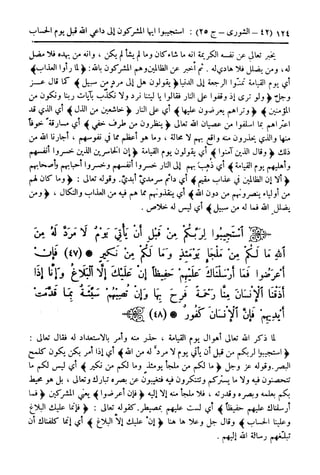 ١٢٤ (٤٢ – الشورى – ج ٢٥) : استجيبوا أيها المشركون إلى داعي الله قبل يوم الحساب
يخبر تعالى عن نفسه الكريمة انه ما شاء كان وما لم يشأ لم يكن ، وانه من يهده فلا مضل
له ، ومن يضلل فلا هادي له . ثم أخبر عن الظالمين وهم المشركون بالله : ﴿ لما رأوا العذاب ﴾
أي يوم القيامة تمنوا الرجعة إلى الدنيا ﴿ يقولون هل إلى مرد من سبيل ﴾ كما قال عز
وجل ﴿ ولو ترى إذ وقفوا على النار فقالوا يا ليتنا نرد ولا نكذب بآيات ربنا ونكون من
المؤمنين ﴾ ﴿ وتراهم يعرضون عليها ﴾ أي على النار ﴿ خاشعين من الذل ﴾ أي الذي قد
اعتراهم بما أسلفوا من عصيان الله تعالى ﴿ ينظرون من طرف خفي ﴾ أي مسارقة خوفاً
منها والذي يحذرون منه واقع بهم لا محالة ، وما هو أعظم مما في نفوسهم ، أجارنا الله من
ذلك ﴿ وقال الذين آمنوا ﴾ أي يقولون يوم القيامة ﴿ إن الخاسرين الذين خسروا أنفسهم
وأهليهم يوم القيامة ﴾ أي ذهب بهم إلى النار خسروا أنفسهم وخسروا أحبابهم وأصحابهم
﴿ ألا إن الظالمين في عذاب مقيم ﴾ أي دائم سرمدي أبدي . وقوله تعالى : ﴿ وما كان لهم
من أولياء ينصرونهم من دون الله ﴾ أي ينقذونهم مما هم فيه من العذاب والنكال ، ﴿ ومن
يضلل الله فما له من سبيل ﴾ أي ليس له خلاص .
﴿ ٱسْتَجِيبُوا۟ لِرَبِّكُم مِّن قَبْلِ أَن يَأْتِىَ يَوْمٌ لَّا مَرَدَّ لَهُۥ مِنَ
ٱللَّهِ مَا لَكُم مِّن مَّلْجَإٍ يَوْمَئِذٍ وَمَا لَكُم مِّن نَّكِيرٍ (٤٧) فَإِنْ
أَعْرَضُوا۟ فَمَآ أَرْسَلْنَٰكَ عَلَيْهِمْ حَفِيظًا إِنْ عَلَيْكَ إِلَّا ٱلْبَلَٰغُ وَإِنَّآ إِذَآ
أَذَقْنَا ٱلْإِنسَٰنَ مِنَّا رَحْمَةً فَرِحَ بِهَا وَإِن تُصِبْهُمْ سَيِّئَةٌ بِمَا قَدَّمَتْ
أَيْدِيهِمْ فَإِنَّ ٱلْإِنسَٰنَ كَفُورٌ (٤٨) ﴾
لما ذكر الله تعالى أهوال يوم القيامة ، حذر منه وأمر بالاستعداد له فقال تعالى :
﴿ استجيبوا لربكم من قبل أن يأتي يوم لا مرد له من الله ﴾ أي إذا أمر بكن يكون كلمح
البصر . وقوله عز وجل ﴿ ما لكم من ملجأ يومئذ وما لكم من نكير ﴾ أي ليس لكم ما
تتحصنون فيه ولا ما يستركم وتتنكرون فيه فتغيبون عن بصره تبارك وتعالى ، بل هو محيط
بكم بعلمه وبصره وقدرته ، فلا ملجأ منه إلا إليه ﴿ فإن أعرضوا ﴾ يعني المشركين ﴿ فما
أرسلناك عليهم حفيظاً ﴾ أي لست عليهم بمصيطر . كقوله تعالى : ﴿ فإنما عليك البلاغ
وعلينا الحساب ﴾ وقال جل وعلا ها هنا ﴿ إن عليك إلا البلاغ ﴾ أي إنما كلفناك أن
تبلغهم رسالة الله إليهم .